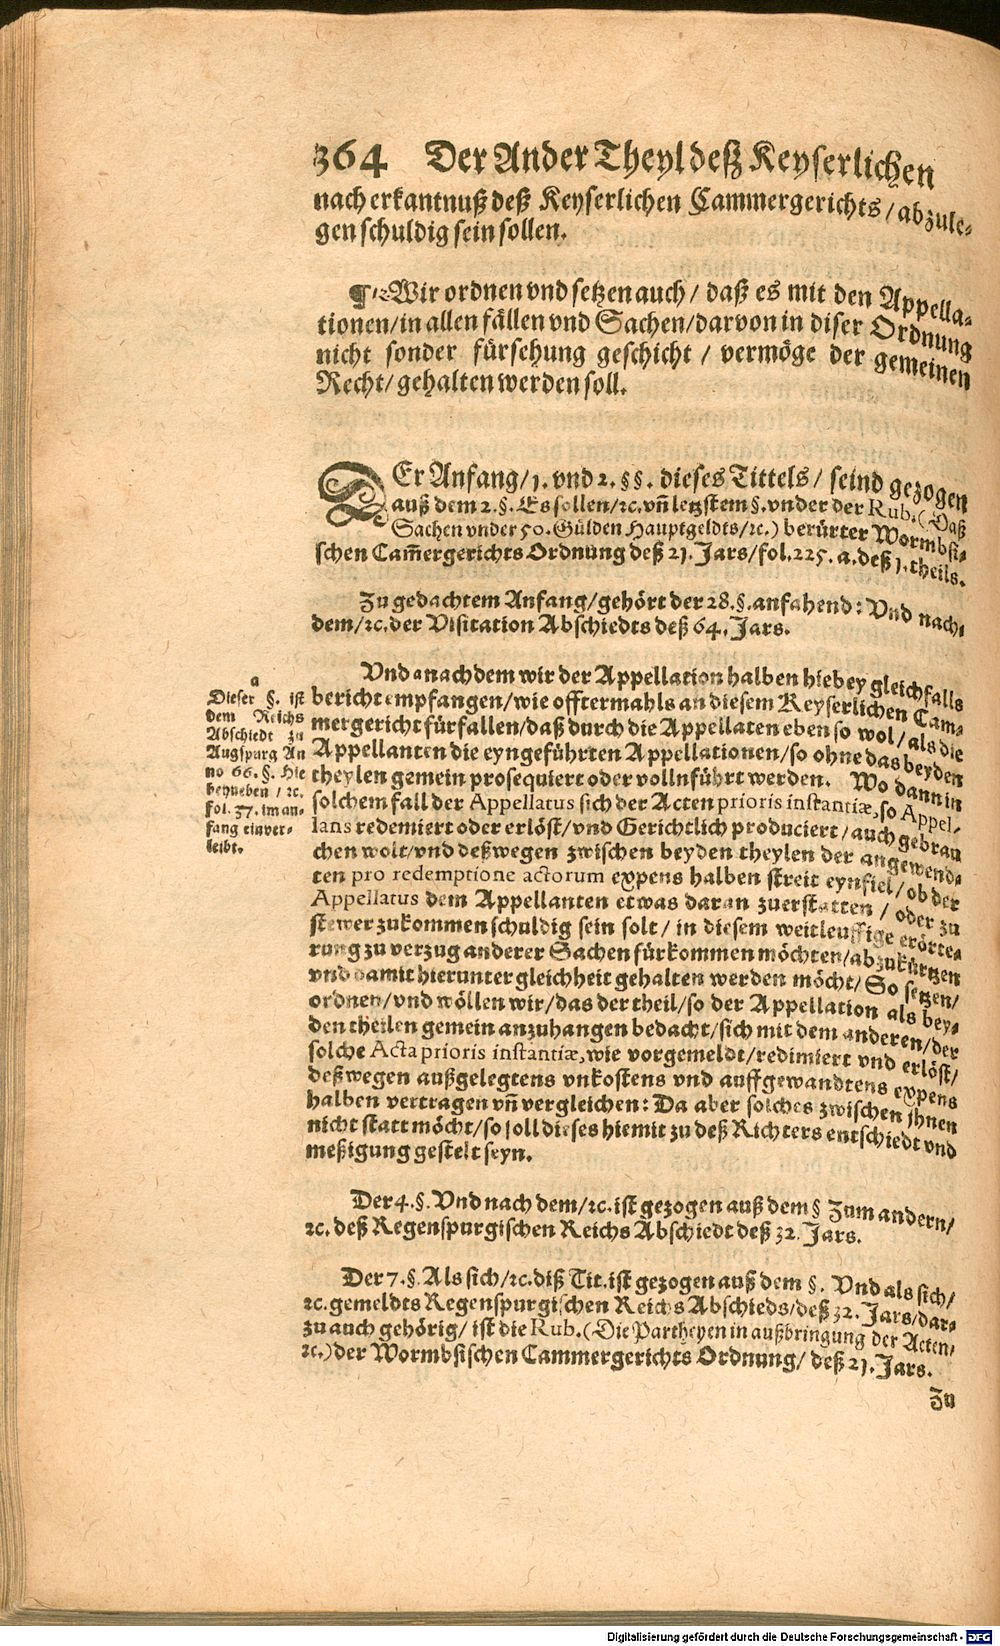 364 Der Ander Theyl deß Keyserlichen
nach erkantnuß deß Keyserlichen Cammergerichts / abzule-
gen schuldig sein sollen.
¶ 12 Wir ordnen vnd setzen auch / daß es mit den Appella-
tionen / in allen fällen vnd Sachen / darvon in diser Ordnung
nicht sonder fürsehung geschicht / vermöge der gemeinen
Recht / gehalten werden soll.
DEr Anfang / 1. vnd 2. §§. dieses Tittels / seind gezogen
auß dem 2. §. Es sollen / ꝛc. vñ letzstem §. vnder der Rub. (Daß
Sachen vnder 50. Gülden Hauptgeldts / ꝛc.) berürter Wormbsi-
schen Cam̃ergerichts Ordnung deß 21. Jars / fol. 225. a. deß 1. theils.
Zu gedachtem Anfang / gehört der 28. §. anfahend: Vnd nach-
dem / ꝛc. der Visitation Abschiedts deß 64. Jars.
Vnd a nachdem wir der Appellation halben hiebey gleichfalls
bericht empfangen / wie offtermahls an diesem Keyserlichen Cam-
mergericht fürfallen / daß durch die Appellaten eben so wol / als die
Appellanten die eyngeführten Appellationen / so ohne das beyden
theylen gemein prosequiert oder vollnführt werden. Wo dann in
solchem fall der Appellatus sich der Acten prioris instantiæ, so Appel-
lans redemiert oder erlöst / vnd Gerichtlich produciert / auch gebrau
chen wolt / vnd deßwegen zwischen beyden theylen der angewend-
ten pro redemptione actorum expens halben streit eynfiel / ob der
Appellatus dem Appellanten etwas daran zuerstatten / oder zu
stewer zukommen schuldig sein solt / in diesem weitleuffige erörte-
rung zu verzug anderer Sachen fürkommen möchten / abzukürtzen
vnd damit hierunter gleichheit gehalten werden möcht / So setzen /
ordnen / vnd wöllen wir / das der theil / so der Appellation als bey-
den theilen gemein anzuhangen bedacht / sich mit dem anderen / der
solche Acta prioris instantiæ, wie vorgemeldt / redimiert vnd erlöst /
deßwegen außgelegtens vnkostens vnd auffgewandtens expens
halben vertragen vñ vergleichen: Da aber solches zwischen jhnen
nicht statt möcht / so soll dieses hiemit zu deß Richters entschiedt vnd
meßigung gestelt seyn.
a
Dieser §. ist
dem Reichs
Abschiedt zu
Augspurg An
no 66. §. Hie
beyneben / ꝛc.
fol. 37. im an-
fang einver-
leibt.
Der 4. §. Vnd nach dem / ꝛc. ist gezogen auß dem § Zum andern /
ꝛc. deß Regenspurgischen Reichs Abschiedt deß 32. Jars.
Der 7. §. Als sich / ꝛc. diß Tit. ist gezogen auß dem §. Vnd als sich /
ꝛc. gemeldts Regenspurgischen Reichs Abschieds / deß 32. Jars / dar-
zu auch gehörig / ist die Rub. (Die Partheyen in außbringung der Acten /
ꝛc.) der Wormbsischen Cammergerichts Ordnung / deß 21. Jars.
Zu
Digitalisierung gefördert durch die Deutsche Forschungsgemeinschaft - DFG